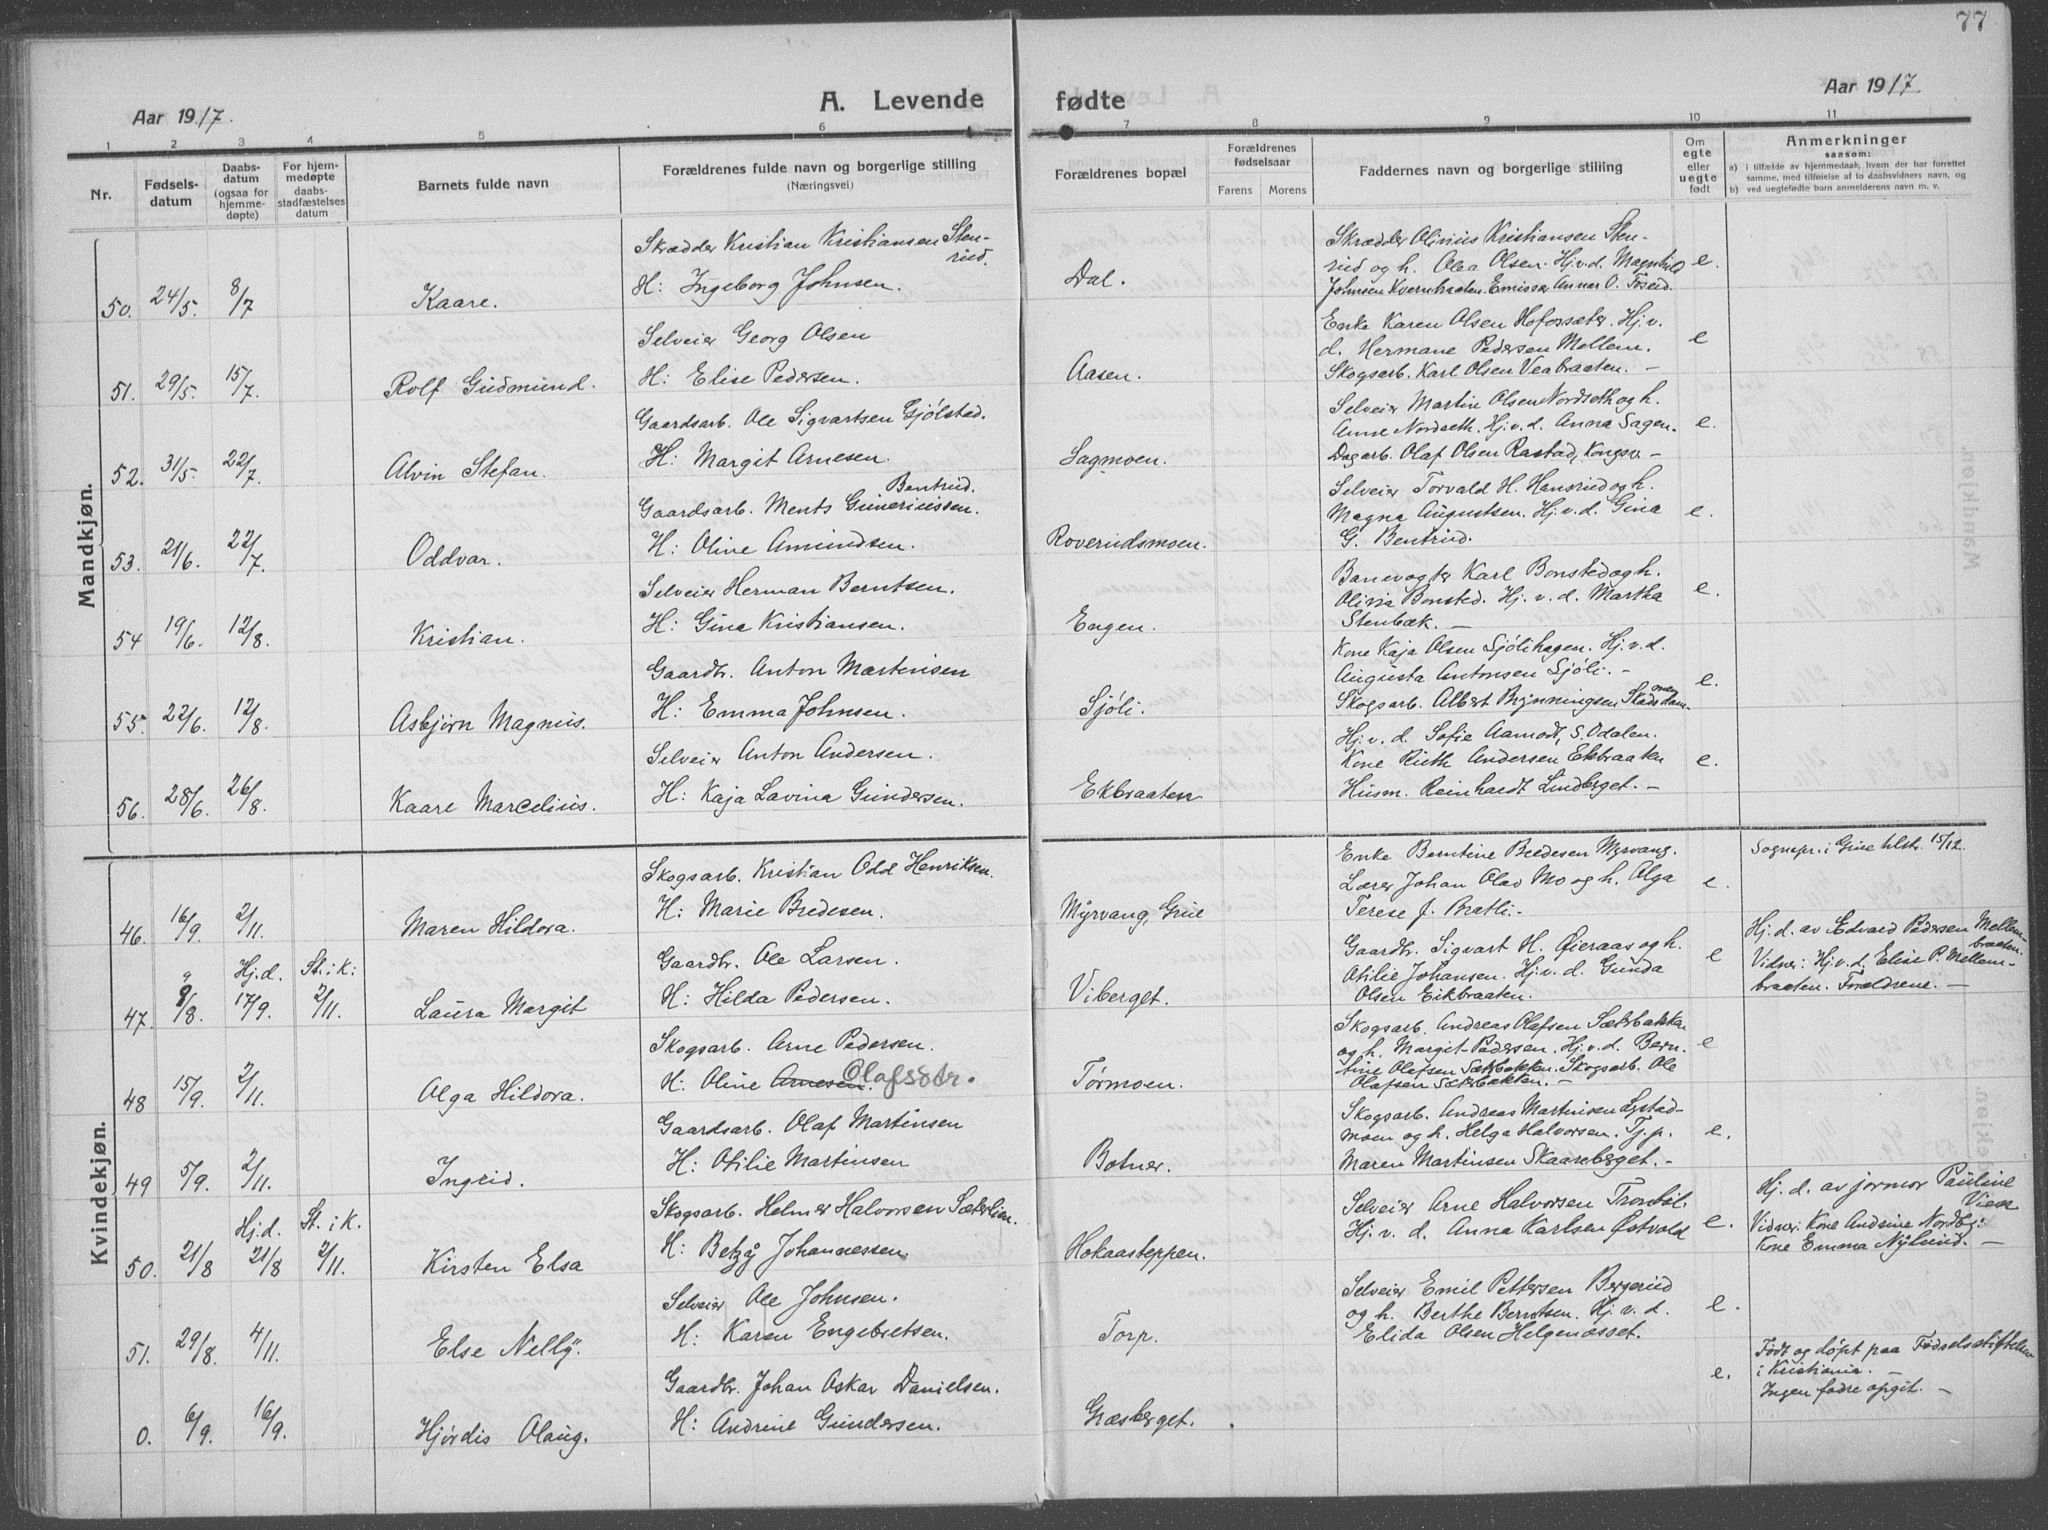 77
Aar 1917.
A. Levende
fødte
Aar 1917.
1 2 3 4 5 6 7 8 9 10 11
Nr.
Fødsels-
datum
Daabs-
datum
(ogsaa for
hjemme-
døpte)
For hjem-
medøpte
daabs-
stadfæstelses
datum
Barnets fulde navn
Forældrenes fulde navn og borgerlige stilling
(Næringsvei)
Forældrenes bopæl
Forældrenes
fødselsaar
Farens Morens
Faddernes navn og borgerlige stilling
Om
egte
eller
uegte
født
Anmerkninger
saasom:
a) i tilfælde av hjemmedaab, hvem der har forrettet
samme, med tilføielse af to daabsvidners navn, og
b) ved uegtefødte barn anmelderens navn m. v.
Mandkjøn.
50. 24/5. 8/7 Kaare.
Skrædder Kristian Kristiansen Sten-
rud.
H: Ingeborg Johnsen.
Dal.
Skrædder Olinius Kristiansen Sten-
rud og h. Olea Olsen. Hj.v.d. Magnhild
Johnsen Kvernbraaten. Emissær Annar O. Foseid.
e.
51. 29/5. 15/7. Rolf Gudmund.
Selveier Georg Olsen
H: Elise Pedersen.
Aasen.
Enke Karen Olsen Hofossæter. Hj.v.
d. Hermane Pedersen Mellem.
Skogsarb. Karl Olsen Veabraaten. –
e
52. 31/5. 22/7. Alvin Stefan.
Gaardsarb. Ole Sigvartsen Gjølstad.
H: Margit Arnesen.
Sagmoen.
Selveier Martin Olsen Nordseth og h.
Anne Nordseth. Hj.v.d. Anna Sagen.
Dagarb. Olaf Olsen Rastad, Kongsv. –
e.
53. 21/6. 22/7. Oddvar.
Bentrud.
Gaardsarb. Ments Guneriussen.
H: Oline Amundsen.
Roverudsmoen.
Selveier Torvald H. Hansrud og h.
Magna Augustsen. Hj.v.d. Gina
G. Bentrud.
e.
54 19/6. 12/8. Kristian.
Selveier Herman Berntsen.
H: Gina Kristiansen.
Engen.
Banevogter Karl Bonsted og h.
Olivia Bonsted. Hj. v. d. Martha
Stenbæk. –
e.
55. 22/6. 12/8. Asbjørn Magnus.
Gaardbr. Anton Martinsen
H: Emma Johnsen.
Sjøli.
Kone Kaja Olsen Sjølihagen. Hj.v.d.
Augusta Antonsen Sjøli. –
Skogsarb. Albert Brynningsen
e.
56. 28/6. 26/8. Kaare Marcelius.
Selveier Anton Andersen.
H: Kaja Lavina Gundersen.
Ekbraaten
Hj. v. d. Sofie Aamodt, S. Odalen.
Kone Ruth Andersen Ekbraaten
Husm. Reinhardt Lindberget. –
e.
Kvindekjøn.
46. 16/9. 2/11. Maren Hildora.
Skogsarb. Kristian Odd Henriksen.
H: Marie Bredesen.
Myrvang, Grue
Enke Berntine Bredesen Myrvang.
Lærer Johan Olav Mo og h. Olga
Terese J. Bratli. –
e.
Sognepr. i Grue tilstr. 15/12.
47. 9/8. Hj.d. 17/9. St. i k: 2/11. Laura Margit
Gaardbr. Ole Larsen.
H: Hilda Pedersen.
Viberget.
Gaardbr. Sigvart H. Øieraas og h.
Otilie Johansen. Hj.v.d. Gunda
Olsen Eikbraaten.
e
Hj. d. av Edvard Pedersen Mellem-
braaten.
Vidner: Hj.v.d. Elise P. Mellem-
braaten. Forældrene. –
48 15/9. 2/11. Olga Hildora.
Skogsarb. Arne Pedersen.
H: Oline Arnesen. Olafsdtr.
Tørmoen.
Skogsarb. Andreas Olafsen Sæterbakken
og h. Margit Pedersen. Hj.v.d. Bern-
tine Olafsen Sæterbakken. Skogsarb. Ole
Olafsen Sæterbakken. –
e
49 5/9. 2/11. Ingrid.
Gaardsarb. Olaf Martinsen
H: Otilie Martinsen
Botner.
Skogsarb. Andreas Martinsen Lystad-
moen og h. Helga Halvorsen. Tj.p.
Maren Martinsen Skaareberget. –
e.
50. 21/8 Hj.d. 21/8 St. i k. 2/11. Kirsten Elsa
Skogsarb. Helmer Halvorsen Sæterlien.
H: Betzy Johannessen.
Hokaasteppen.
Selveier Arne Halvorsen Tronbøl.
Hj. v. d. Anna Karlsen Østvold
e.
Hj. d. av jormor Pauline
Vien
Vidner: Kone Andrine Nordby:
Kone Emma Nylund. –
51. 29/8. 4/11. Else Nelly.
Selveier Ole Johnsen.
H: Karen Engebretsen.
Torp.
Selveier Emil Pettersen Bergerud
og h. Berthe Berntsen. Hj. v. d.
Elida Olsen Helgenosset.
e.
0. 6/9. 16/9. Hjørdis Olaug.
Gaardbr. Johan Oskar Danielsen.
H: Andrine Gundersen.
Græsberget.
e.
Født og døpt paa Fødselsstiftelsen
i Kristiania.
Ingen fadre opgit. –